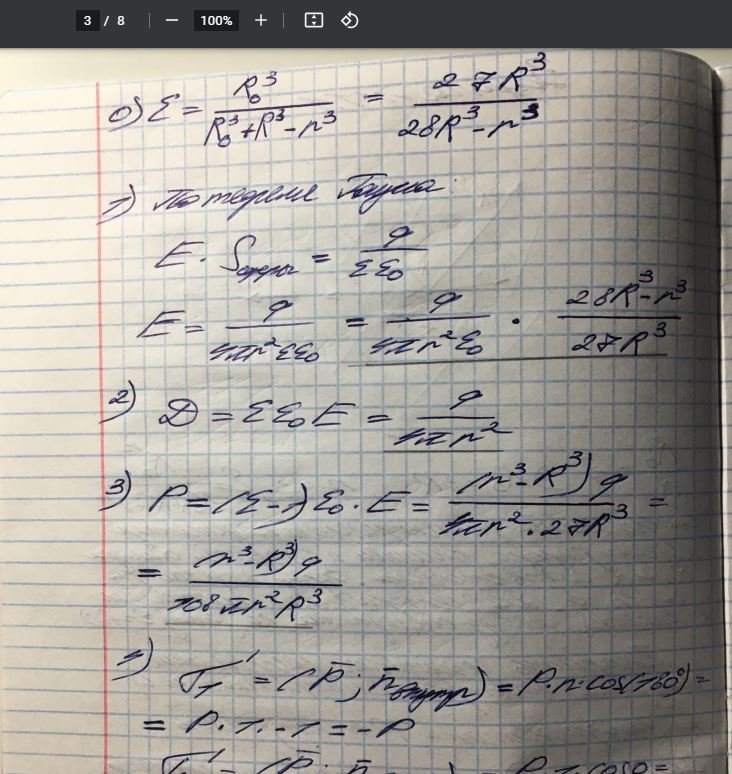 3 / 8 100%
0) Ɛ = R₀³ / (R₀³ + R³ - r³) = 27R³ / (28R³ - r³)
1) По теореме Гаусса:
E · Sсферы = q / (ƐƐ₀)
E = q / (4πr²ƐƐ₀) = q / (4πr²Ɛ₀) · (28R³ - r³) / (27R³)
2) D = ƐƐ₀E = q / (4πr²)
3) P = (Ɛ - 1)Ɛ₀ · E = (r³ - R³)q / (4πr² · 27R³) =
= (r³ - R³)q / (108πr²R³)
σ₁' = (P̄; n̄внутр) = P·n·cos(180°) =
= P · 1 · -1 = -P